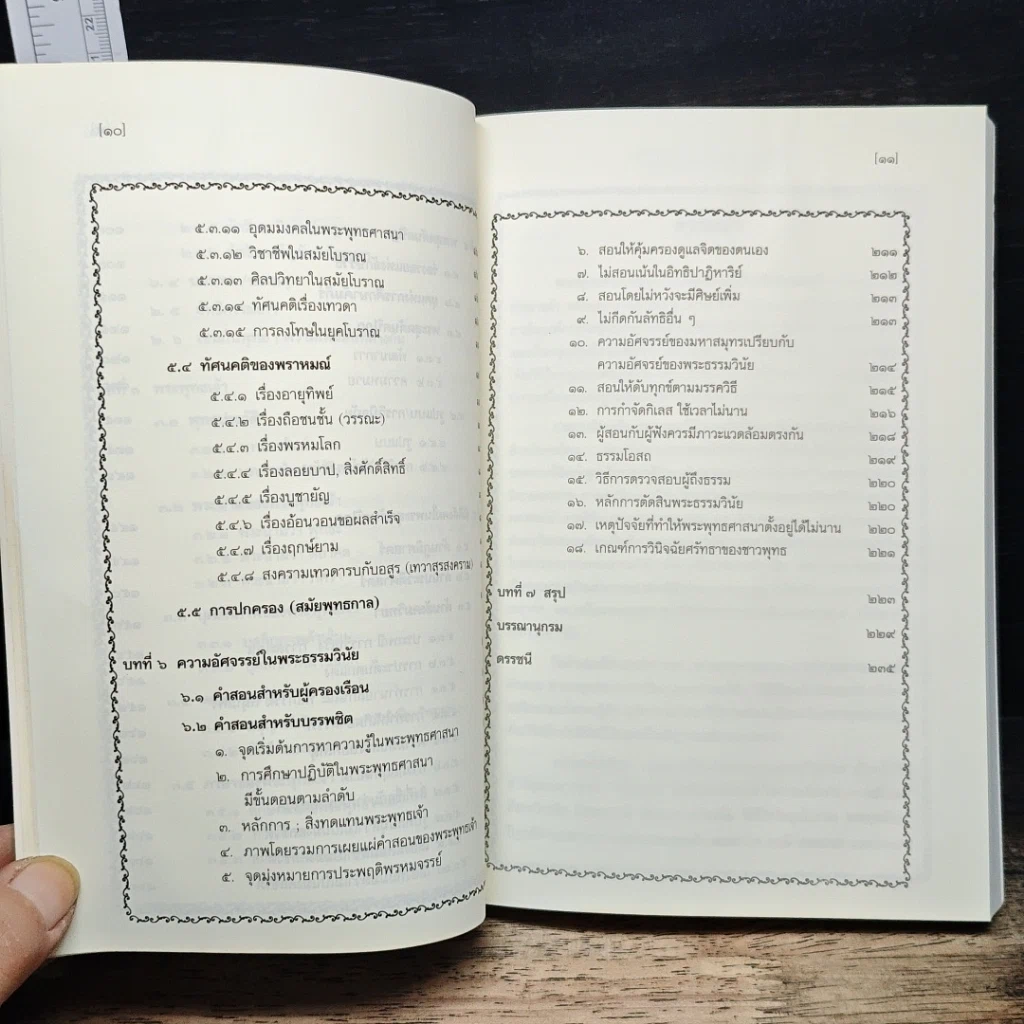 [๑๐]
๕.๓.๑๑ อุดมมงคลในพระพุทธศาสนา
๕.๓.๑๒ วิชาชีพในสมัยโบราณ
๕.๓.๑๓ ศิลปวิทยาในสมัยโบราณ
๕.๓.๑๔ ทัศนคติเรื่องเทวดา
๕.๓.๑๕ การลงโทษในยุคโบราณ
๕.๔ ทัศนคติของพราหมณ์
๕.๔.๑ เรื่องอายุทิพย์
๕.๔.๒ เรื่องถือชนชั้น (วรรณะ)
๕.๔.๓ เรื่องพรหมโลก
๕.๔.๔ เรื่องลอยบาป, สิ่งศักดิ์สิทธิ์
๕.๔.๕ เรื่องบูชายัญ
๕.๔.๖ เรื่องอ้อนวอนขอผลสำเร็จ
๕.๔.๗ เรื่องฤกษ์ยาม
๕.๔.๘ สงครามเทวดารบกับอสูร (เทวาสุรสงคราม)
๕.๕ การปกครอง (สมัยพุทธกาล)
บทที่ ๖ ความอัศจรรย์ในพระธรรมวินัย
๖.๑ คำสอนสำหรับผู้ครองเรือน
๖.๒ คำสอนสำหรับบรรพชิต
๑. จุดเริ่มต้นการหาความรู้ในพระพุทธศาสนา
๒. การศึกษาปฏิบัติในพระพุทธศาสนา
มีขั้นตอนตามลำดับ
๓. หลักการ ; สิ่งทดแทนพระพุทธเจ้า
๔. ภาพโดยรวมการเผยแผ่คำสอนของพระพุทธเจ้า
๕. จุดมุ่งหมายการประพฤติพรหมจรรย์
[๑๑]
๖. สอนให้คุ้มครองดูแลจิตของตนเอง ๒๑๑
๗. ไม่สอนเน้นในอิทธิปาฏิหาริย์ ๒๑๒
๘. สอนโดยไม่หวังจะมีศิษย์เพิ่ม ๒๑๓
๙. ไม่กีดกันลัทธิอื่น ๆ ๒๑๓
๑๐. ความอัศจรรย์ของมหาสมุทรเปรียบกับ
ความอัศจรรย์ของพระธรรมวินัย ๒๑๔
๑๑. สอนให้ดับทุกข์ตามมรรควิธี ๒๑๕
๑๒. การกำจัดกิเลส ใช้เวลาไม่นาน ๒๑๖
๑๓. ผู้สอนกับผู้ฟังควรมีภาวะแวดล้อมตรงกัน ๒๑๘
๑๔. ธรรมโอสถ ๒๑๙
๑๕. วิธีการตรวจสอบผู้ถึงธรรม ๒๒๐
๑๖. หลักการตัดสินพระธรรมวินัย ๒๒๐
๑๗. เหตุปัจจัยที่ทำให้พระพุทธศาสนาตั้งอยู่ได้ไม่นาน ๒๒๐
๑๘. เกณฑ์การวินิจฉัยศรัทธาของชาวพุทธ ๒๒๑
บทที่ ๗ สรุป ๒๒๓
บรรณานุกรม ๒๒๙
ดรรชนี ๒๓๕